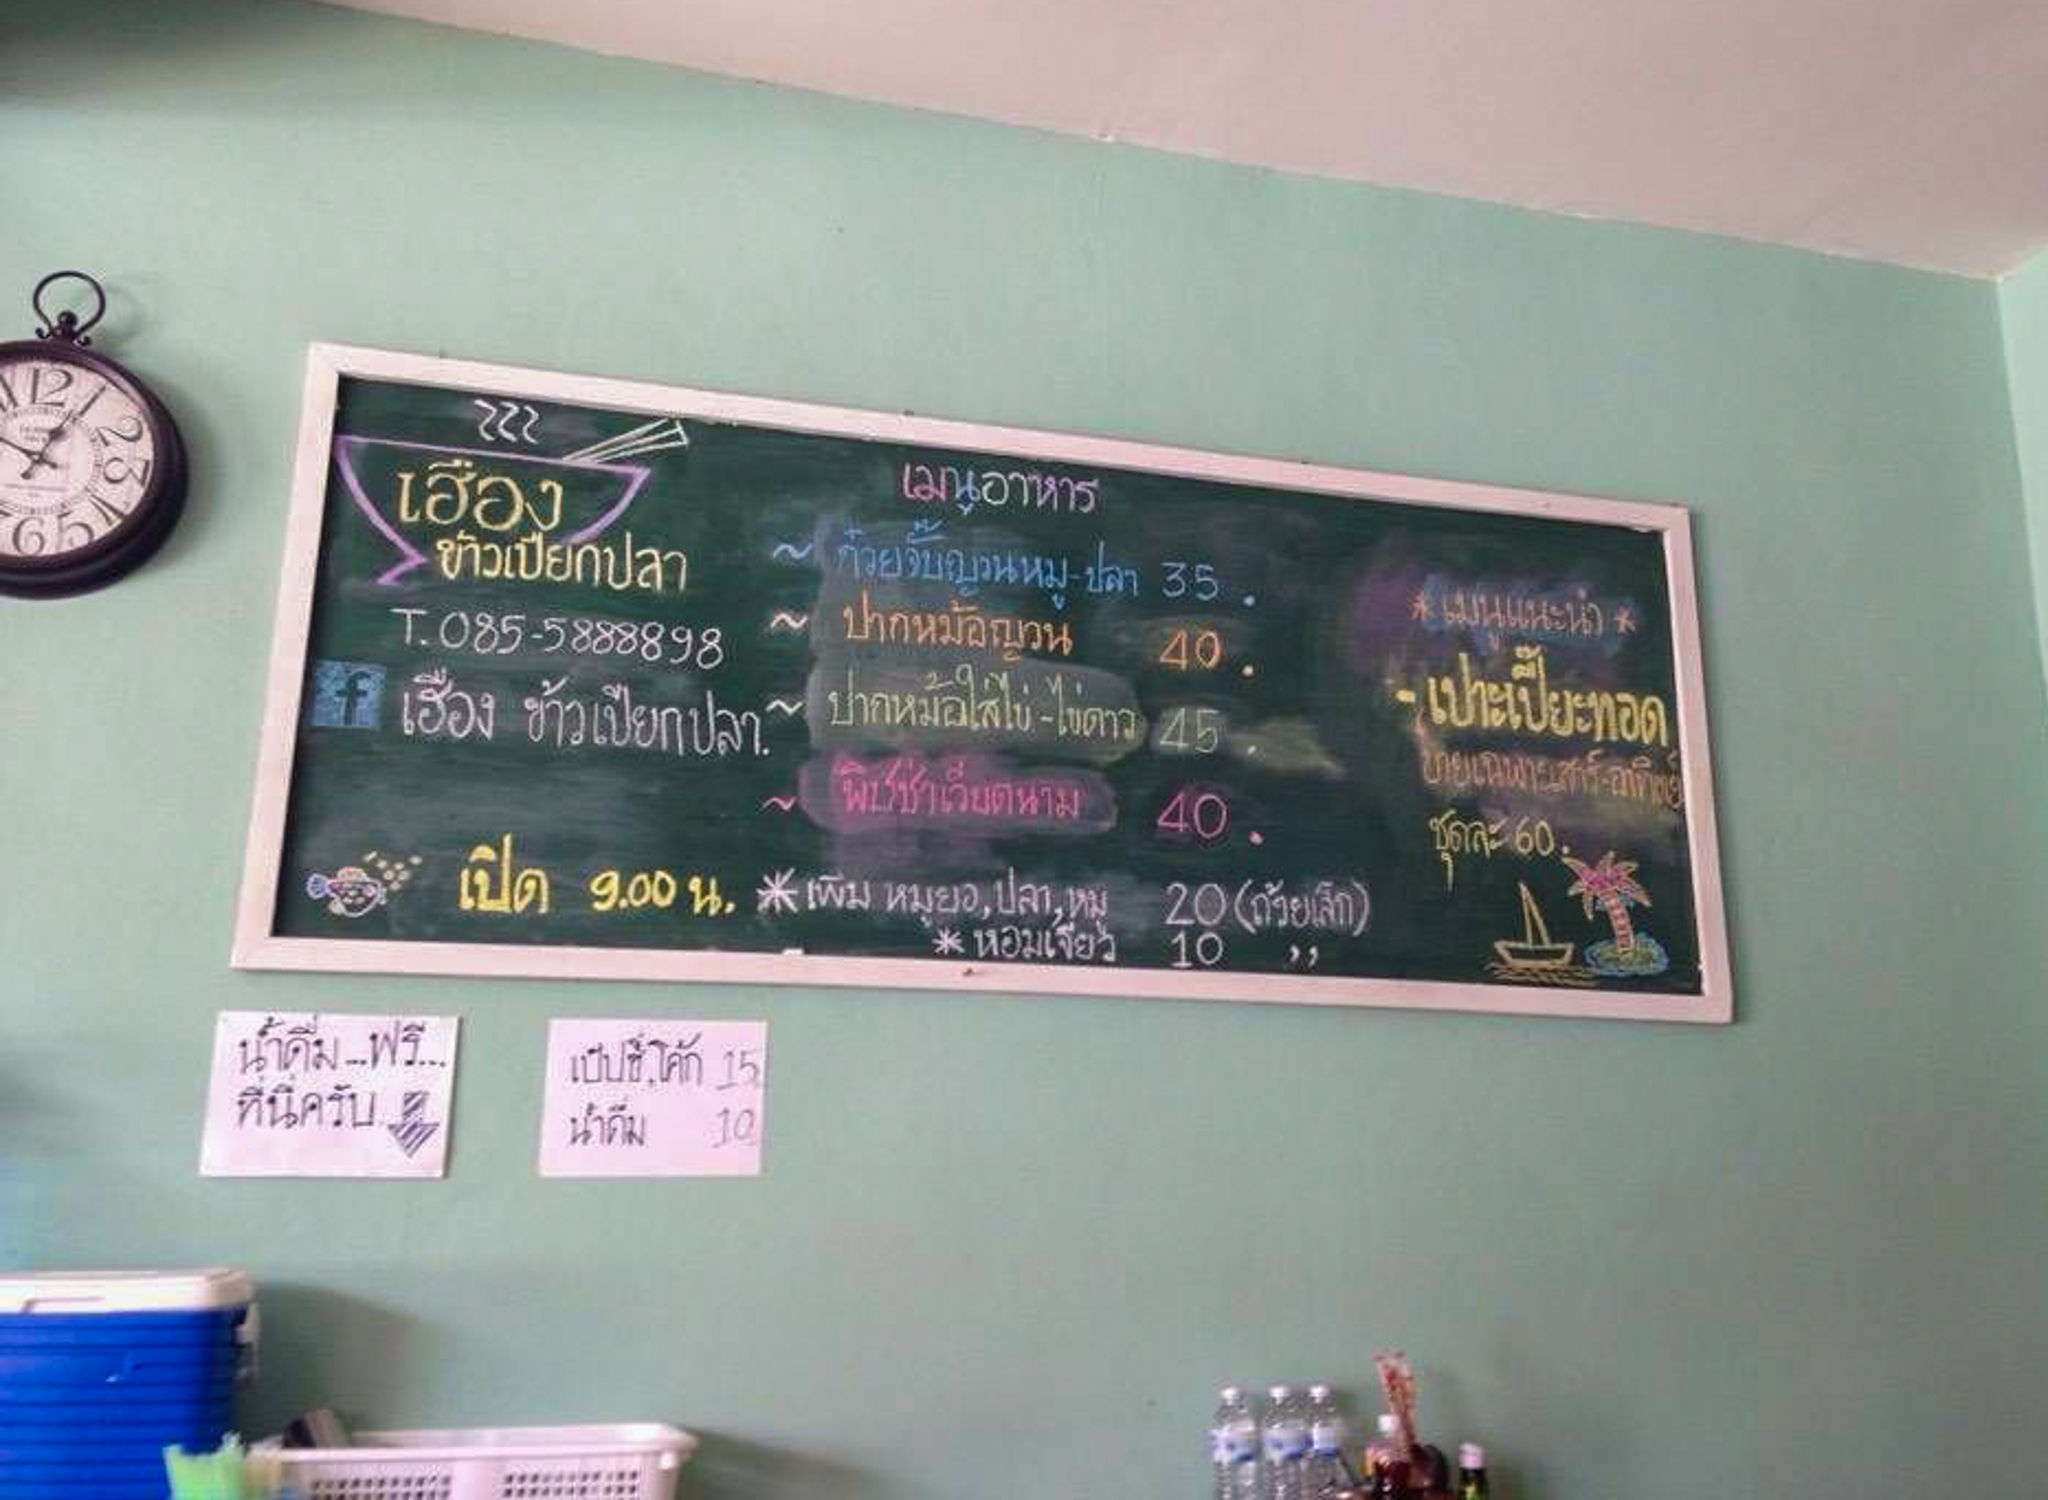 เฮือง
ข้าวเปียกปลา
T. 085-5888898
f เฮือง ข้าวเปียกปลา.
เปิด 9.00 น.
เมนูอาหาร
~ ก๋วยจั๊บญวนหมู-ปลา 35.
~ ปากหม้อญวน 40.
~ ปากหม้อใส่ไข่-ไข่ดาว 45.
~ พิซซ่าเวียดนาม 40.
* เพิ่ม หมูยอ, ปลา, หมู 20 (ถ้วยเล็ก)
* หอมเจียว 10 ,,
* เมนูแนะนำ *
- เปาะเปี๊ยะทอด
ขายเฉพาะเสาร์-อาทิตย์
ชุดละ 60.
น้ำดื่ม...ฟรี...
ที่นี่ครับ
เป๊ปซี่, โค้ก 15
น้ำดื่ม 10
12 1 2 3 4 5 6